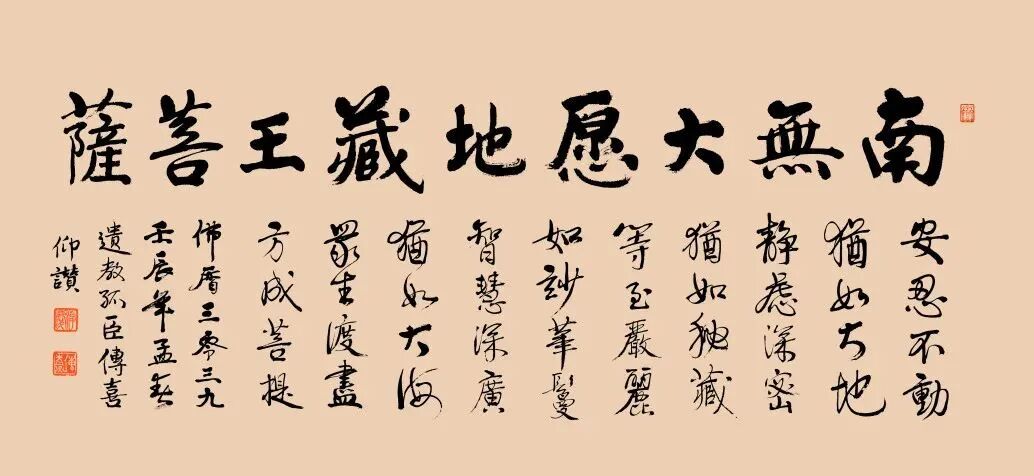 南無大愿地藏王菩薩
安忍不動
猶如大地
静慮深密
猶如秘藏
等至嚴麗
如玅華鬘
智慧深廣
猶如大海
眾生渡盡
方成菩提
佛曆三零三九
壬辰年孟春
遺教孤臣傳喜
仰讚